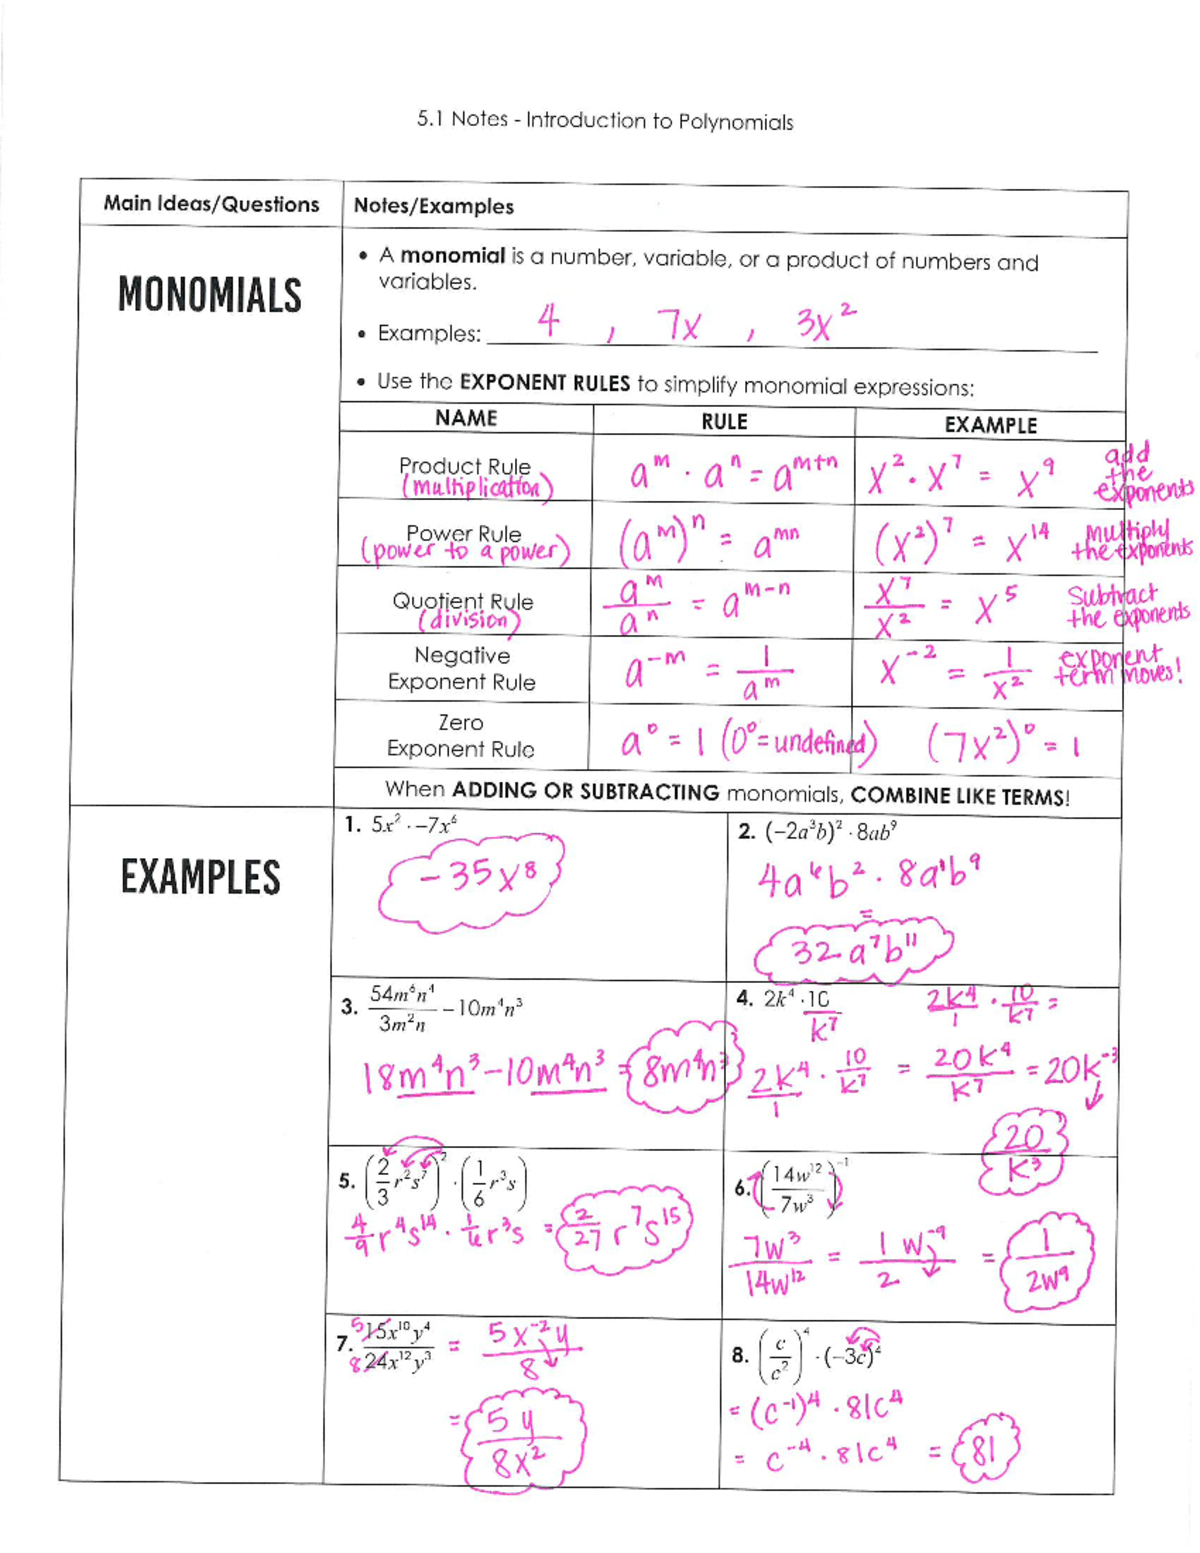 5.1 Notes - Introduction to Polynomials
Main Ideas/Questions
Notes/Examples
MONOMIALS
• A monomial is a number, variable, or a product of numbers and
variables.
• Examples: 4 , 7x , 3x²
• Use the EXPONENT RULES to simplify monomial expressions:
NAME RULE EXAMPLE
Product Rule
(multiplication)
aᵐ · aⁿ = aᵐ⁺ⁿ
x² · x⁷ = x⁹
add
the
exponents
Power Rule
(power to a power)
(aᵐ)ⁿ = aᵐⁿ
(x²)⁷ = x¹⁴
multiply
the exponents
Quotient Rule
(division)
aᵐ/aⁿ = aᵐ⁻ⁿ
x⁷/x² = x⁵
Subtract
the exponents
Negative
Exponent Rule
a⁻ᵐ = 1/aᵐ
x⁻² = 1/x²
exponent
term moves!
Zero
Exponent Rule
a⁰ = 1 (0⁰ = undefined)
(7x²)⁰ = 1
When ADDING OR SUBTRACTING monomials, COMBINE LIKE TERMS!
EXAMPLES
1. 5x² · −7x⁶
−35x⁸
2. (−2a³b)² · 8ab⁹
4a⁶b² · 8a¹b⁹
=
32a⁷b¹¹
3. 54m⁶n⁴/3m²n − 10m⁴n³
18m⁴n³ − 10m⁴n³ = 8m⁴n³
4. 2k⁴ · 10/k⁷
2k⁴/1 · 10/k⁷ =
2k⁴/1 · 10/k⁷ = 20k⁴/k⁷ = 20k⁻³
20/k³
5. (2/3 r²s⁷)² · (1/6 r³s)
4/9 r⁴s¹⁴ · 1/6 r³s = 2/27 r⁷s¹⁵
6. (14w¹²/7w³)⁻¹
7w³/14w¹² = 1w⁻⁹/2 = 1/2w⁹
7. 15x¹⁰y⁴/24x¹²y³ = 5x⁻²y/8
5
8
= 5y/8x²
8. (c/c²)⁴ · (−3c)⁴
= (c⁻¹)⁴ · 81c⁴
= c⁻⁴ · 81c⁴ = 81